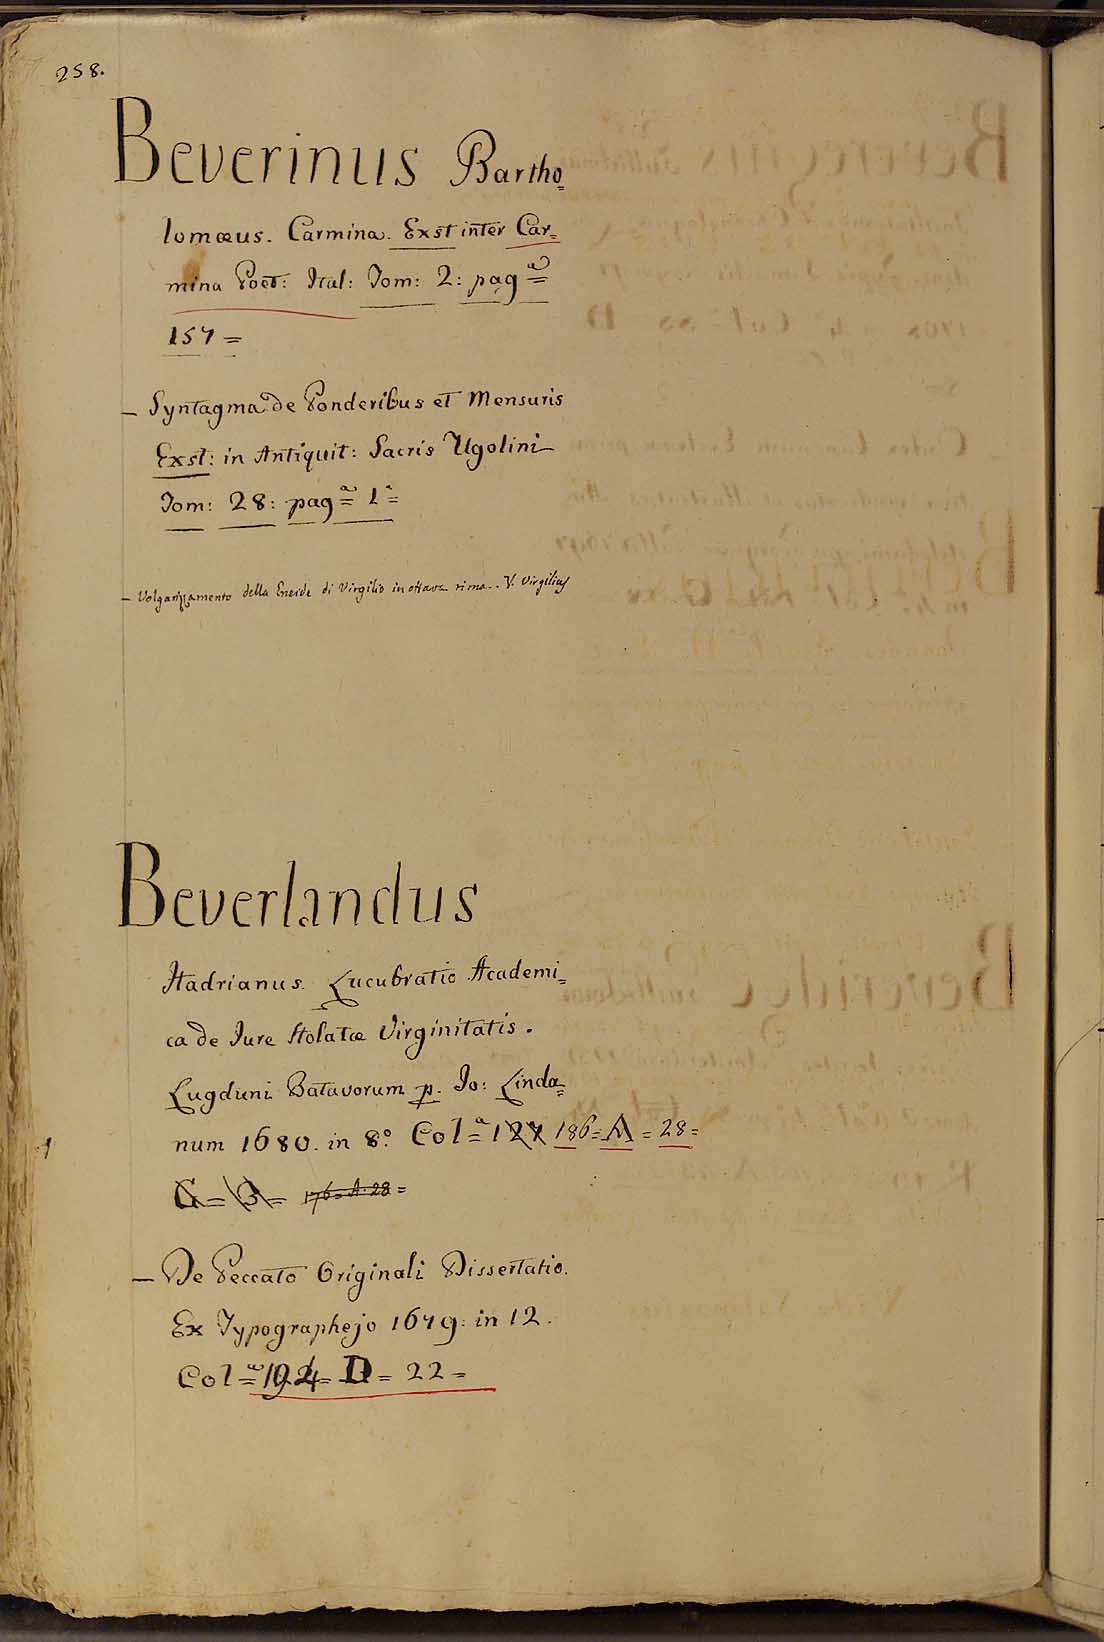 258.
Beverinus Bartho=
lomæus. Carmina. Exst inter Car=
mina Poet: Ital: Tom: 2: pag.a=
157=
– Syntagma de Ponderibus et Mensuris
Exst: in Antiquit: Sacris Ugolini
Tom: 28: pag.a= 1.a=
– Volgarizzamento della Eneide di Virgilio in ottava rima.. V. Virgilius
Beverlandus
Hadrianus. Lucubratio Academi=
ca de Iure Stolatæ Virginitatis.
Lugduni Batavorum p. Io: Linda=
num 1680. in 8.o Col.a= 127 186=A=28=
G=3= 176=A.28=
– De Peccato Originali Dissertatio.
Ex Typographejo 1679: in 12.
Col.a=194=D=22=